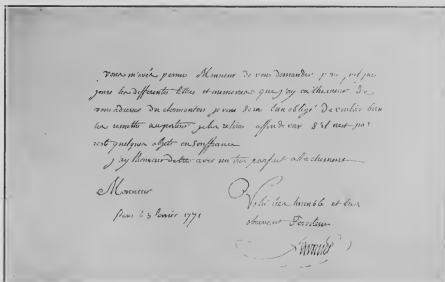 vous m'avés permis Monsieur de vous demander
jours les differentes lettres et memoires que j'ay eu l'honneur de
vous adresser du chamontois je vous serai bien obligé de vouloir bien
les remettre au porteur je les retirer affin de voir s'il n'est pas
resté quelques objets en souffrance
j'ay l'honneur d'etre avec un tres parfait attachement
Monsieur
Paris le 3 fevrier 1771
Votre tres humble et tres
obeissant Serviteur